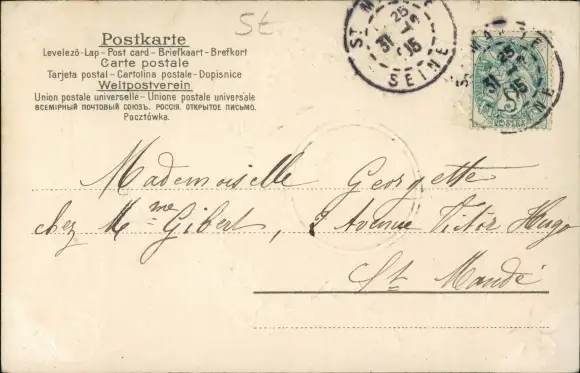 St
Postkarte
Levelező-Lap - Post card - Briefkaart - Brefkort
Carte postale
Tarjeta postal - Cartolina postale - Dopisnice
Weltpostverein
Union postale universelle - Unione postale universale
ВСЕМІРНЫЙ ПОЧТОВЫЙ СОЮЗЪ. РОССІЯ. ОТКРЫТОЕ ПИСЬМО.
Pocztówka.
ST M
25
31
05
SEINE
25
31
05
NE
5
POSTES
Mademoiselle Georgette
chez Mme Gibert, 2 Avenue Victor Hugo
St Mandé